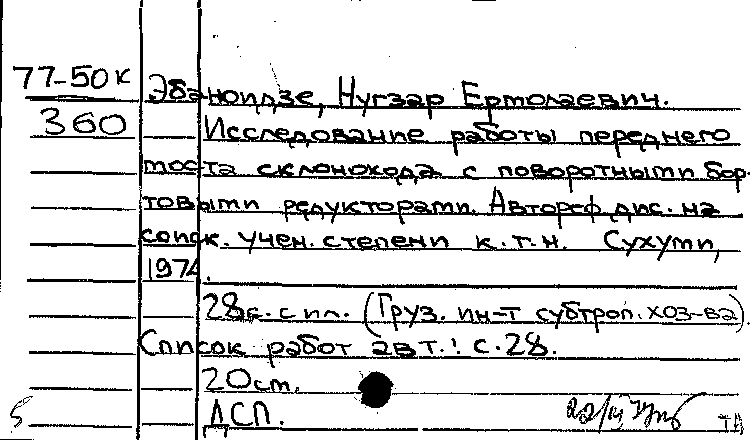 77-50к
Эбаноидзе, Нугзар Ермолаевич.
360
Исследование работы переднего
моста склонохода с поворотными бор-
товыми редукторами. Автореф. дис. на
соиск. учен. степени к.т.н. Сухуми,
1974.
28с. с ил. (Груз. ин-т субтроп. хоз-ва).
Список работ авт.: с.28.
20см.
ДСП.